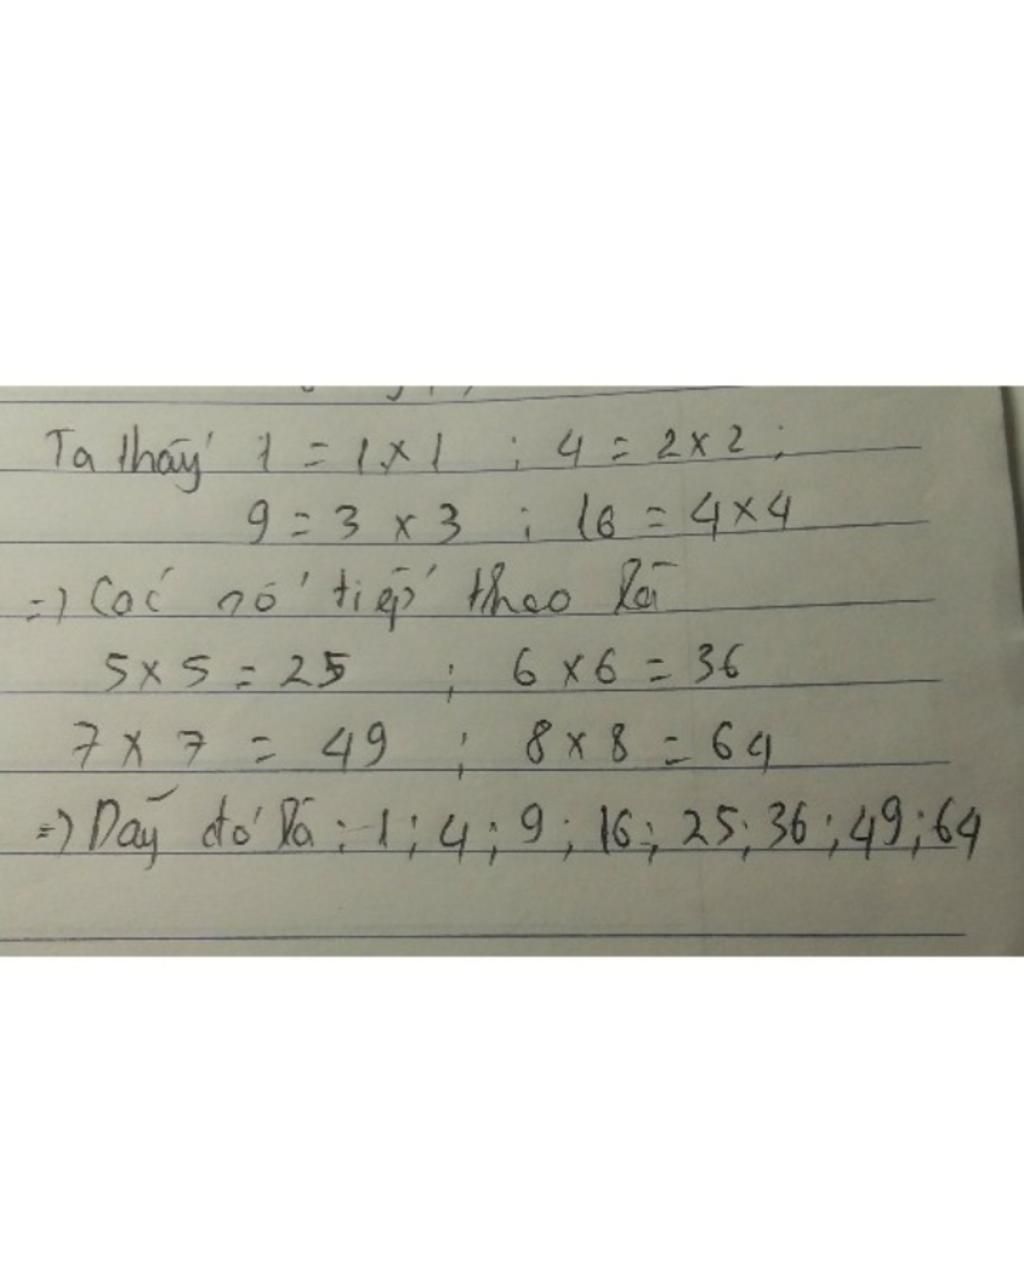 Ta thấy 1 = 1 x 1 ; 4 = 2 x 2 ;
9 = 3 x 3 ; 16 = 4 x 4
=) Các số tiếp theo là
5 x 5 = 25 ; 6 x 6 = 36
7 x 7 = 49 ; 8 x 8 = 64
=) Dãy đó là : 1 ; 4 ; 9 ; 16 ; 25 ; 36 ; 49 ; 64